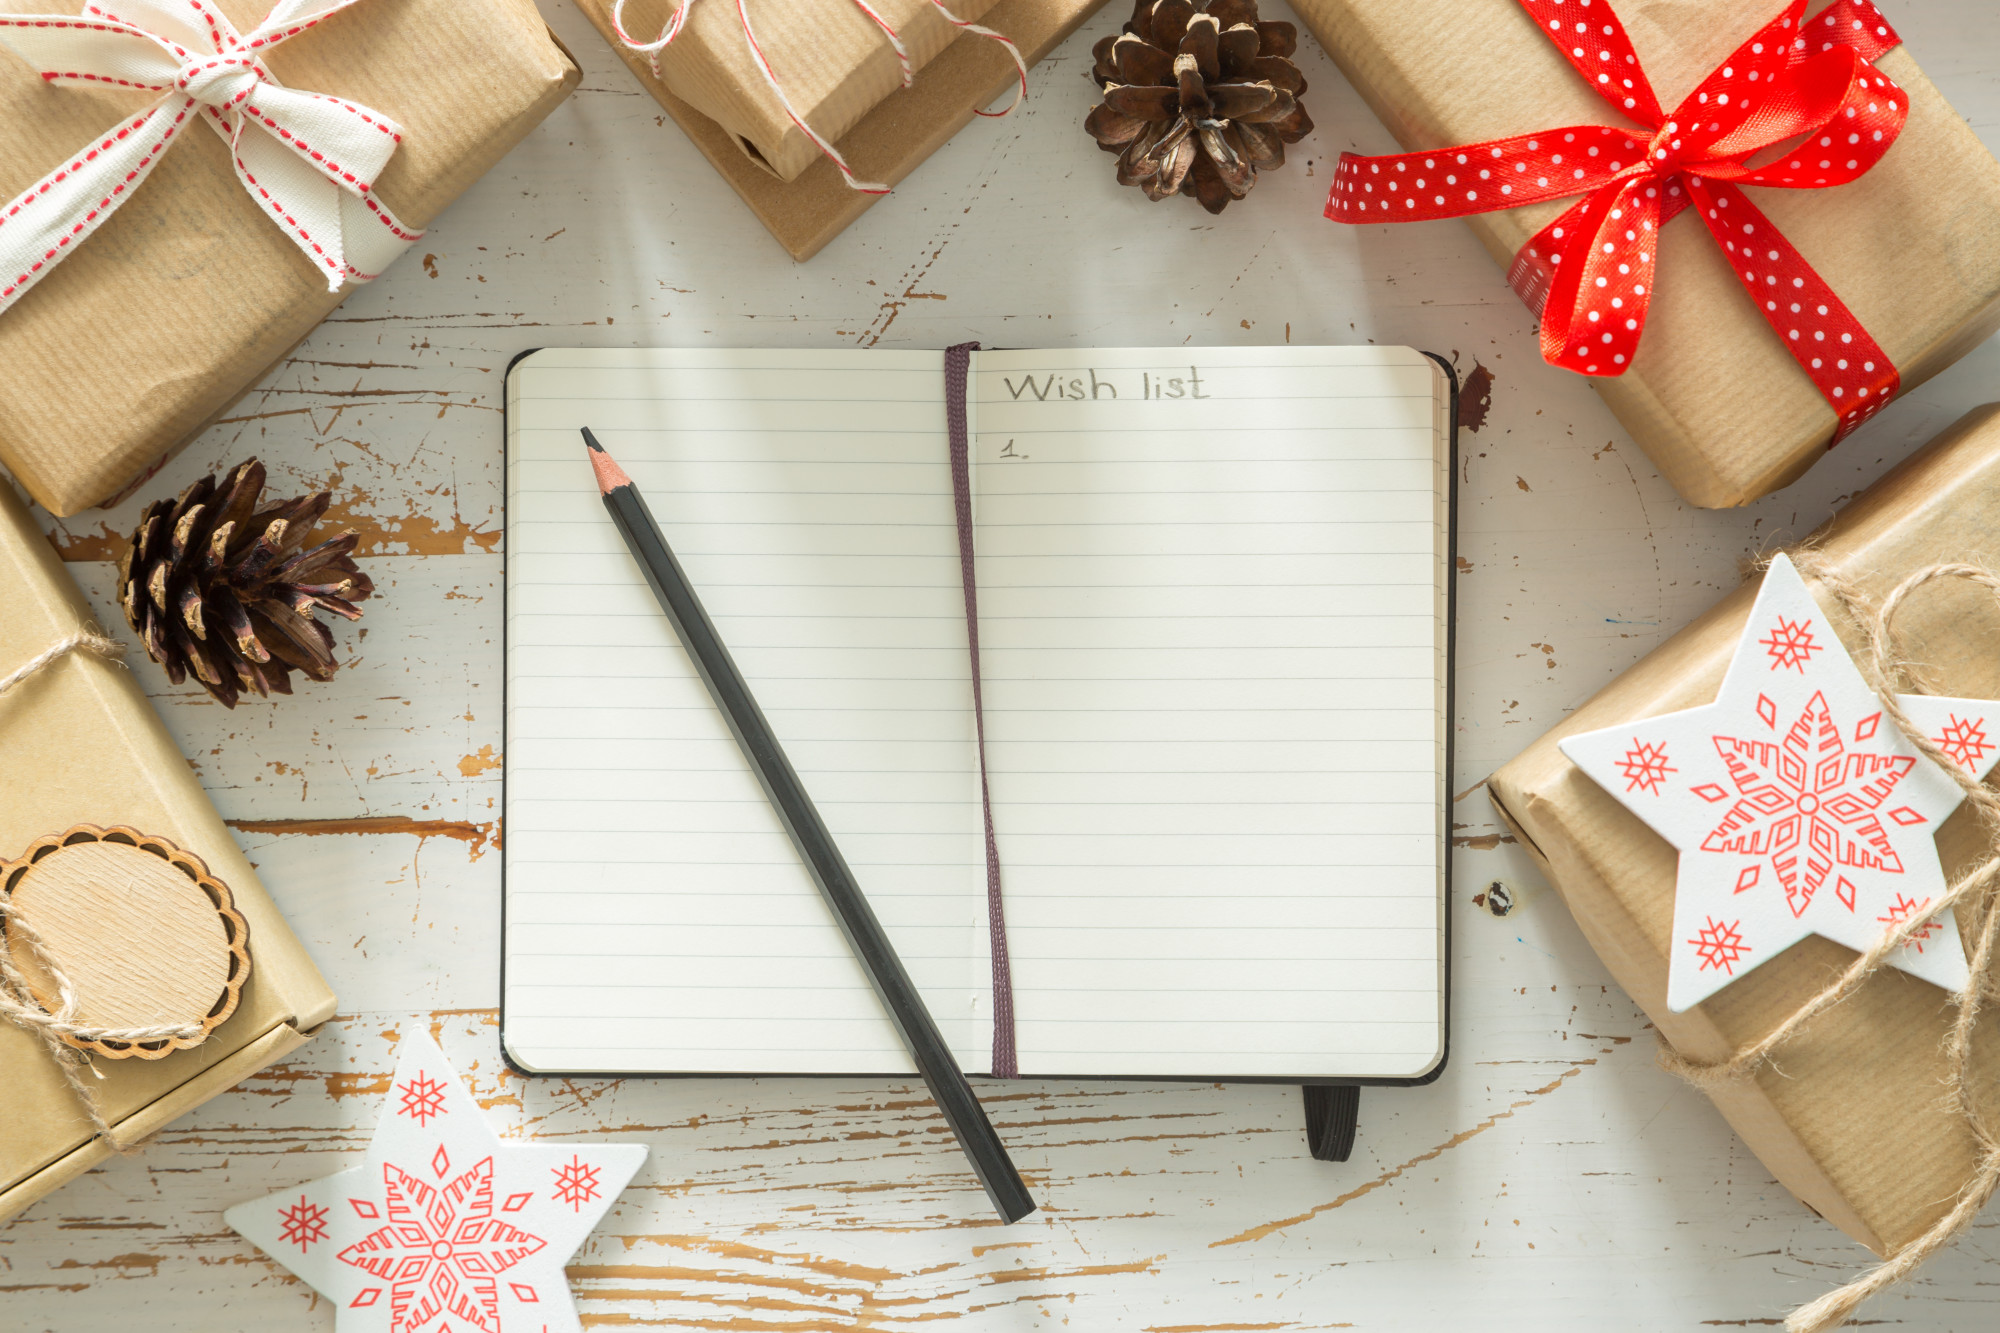 Wish list
1.